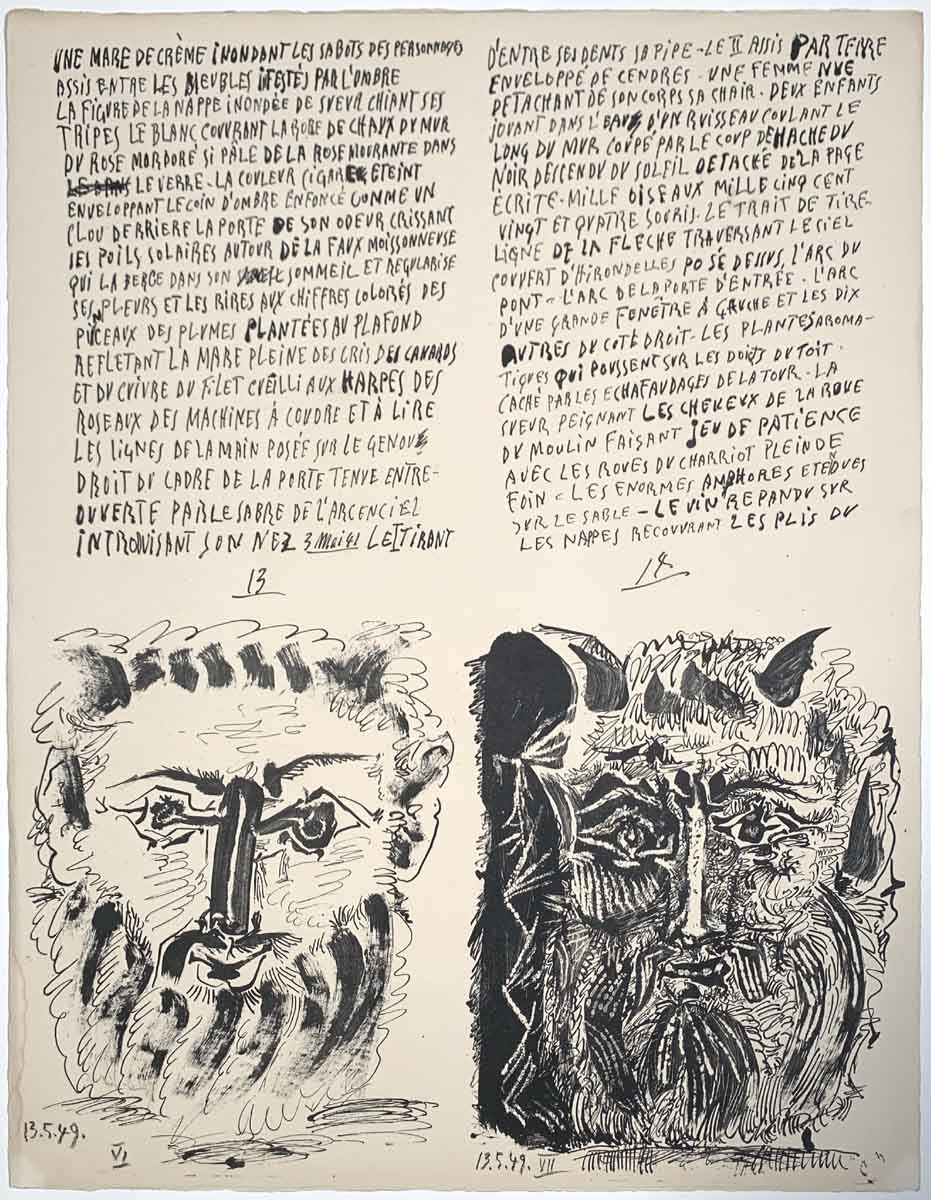 UNE MARE DE CRÈME INONDANT LES SABOTS DES PERSONNAGES
ASSIS ENTRE LES MEUBLES IFESTÉS PAR L'OMBRE
LA FIGURE DE LA NAPPE INONDÉE DE SUEUR CHIANT SES
TRIPES LE BLANC COUVRANT LA ROBE DE CHAUX DU MUR
DU ROSE MORDORÉ SI PÂLE DE LA ROSE MOURANTE DANS
LE VERRE - LA COULEUR CIGARE ETEINT
ENVELOPPANT LE COIN D'OMBRE ENFONCÉ COMME UN
CLOU DERRIERE LA PORTE DE SON ODEUR CRISSANT
SES POILS SOLAIRES AUTOUR DE LA FAUX MOISSONNEUSE
QUI LA BERCE DANS SON SOMMEIL ET REGULARISE
SES PLEURS ET LES RIRES AUX CHIFFRES COLORÉS DES
PUCEAUX DES PLUMES PLANTÉES AU PLAFOND
REFLETANT LA MARE PLEINE DES CRIS DES CANARDS
ET DU CUIVRE DU FILET CUEILLI AUX HARPES DES
ROSEAUX DES MACHINES À COUDRE ET À LIRE
LES LIGNES DE LA MAIN POSÉE SUR LE GENOU
DROIT DU CADRE DE LA PORTE TENUE ENTRE-
OUVERTE PAR LE SABRE DE L'ARCENCIEL
INTRODUISANT SON NEZ 3 Mai 41 LE I TIRANT
13
D'ENTRE SES DENTS SA PIPE - LE II ASSIS PAR TERRE
ENVELOPPÉ DE CENDRES - UNE FEMME NUE
DETACHANT DE SON CORPS SA CHAIR - DEUX ENFANTS
JOUANT DANS L'EAU D'UN RUISSEAU COULANT LE
LONG DU MUR COUPÉ PAR LE COUP DE HACHE DU
NOIR DESCENDU DU SOLEIL DETACHÉ DE LA PAGE
ECRITE - MILLE OISEAUX MILLE CINQ CENT
VINGT ET QUATRE SOURIS - LE TRAIT DE TIRE-
LIGNE DE LA FLECHE TRAVERSANT LE CIEL
COUVERT D'HIRONDELLES POSÉ DESSUS, L'ARC DU
PONT - L'ARC DE LA PORTE D'ENTRÉE - L'ARC
D'UNE GRANDE FENÊTRE À GAUCHE ET LES DIX
AUTRES DU COTÉ DROIT - LES PLANTES AROMA-
TIQUES QUI POUSSENT SUR LES DOIGTS DU TOIT
CACHÉ PAR LES ECHAFAUDAGES DE LA TOUR - LA
SUEUR PEIGNANT LES CHEVEUX DE LA ROUE
DU MOULIN FAISANT JEU DE PATIENCE
AVEC LES ROUES DU CHARRIOT PLEIN DE
FOIN - LES ENORMES AMPHORES ETENDUES
SUR LE SABLE - LE VIN REPANDU SUR
LES NAPPES RECOUVRANT LES PLIS DU
14
13.5.49.
VI
13.5.49. VII